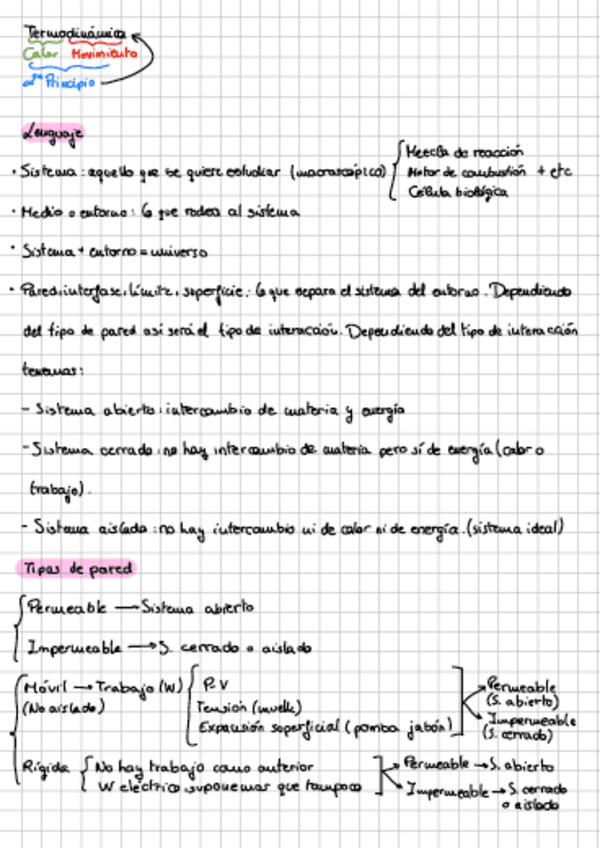 Termodinámica
Calor Movimiento
2º Principio
Lenguaje
· Sistema: aquello que se quiere estudiar (macroscópico) { Mezcla de reacción
Motor de combustión + etc
Célula biológica
· Medio o entorno: lo que rodea al sistema
· Sistema + entorno = universo
· Pared, interfase, límite, superficie: lo que separa el sistema del entorno. Dependiendo
del tipo de pared así será el tipo de interacción. Dependiendo del tipo de interacción
tenemos:
- Sistema abierto: intercambio de materia y energía
- Sistema cerrado: no hay intercambio de materia pero sí de energía (calor o
trabajo).
- Sistema aislado: no hay intercambio ni de calor ni de energía. (sistema ideal)
Tipos de pared
Permeable → Sistema abierto
Impermeable → S. cerrado o aislado
Móvil → Trabajo (W) { P.V
(No aislado) Tensión (muelle)
Expansión superficial (pompa jabón)
Permeable
(S. abierto)
Impermeable
(S. cerrado)
Rígida { No hay trabajo como anterior
W eléctrico, suponemos que tampoco
Permeable → S. abierto
Impermeable → S. cerrado
o aislado